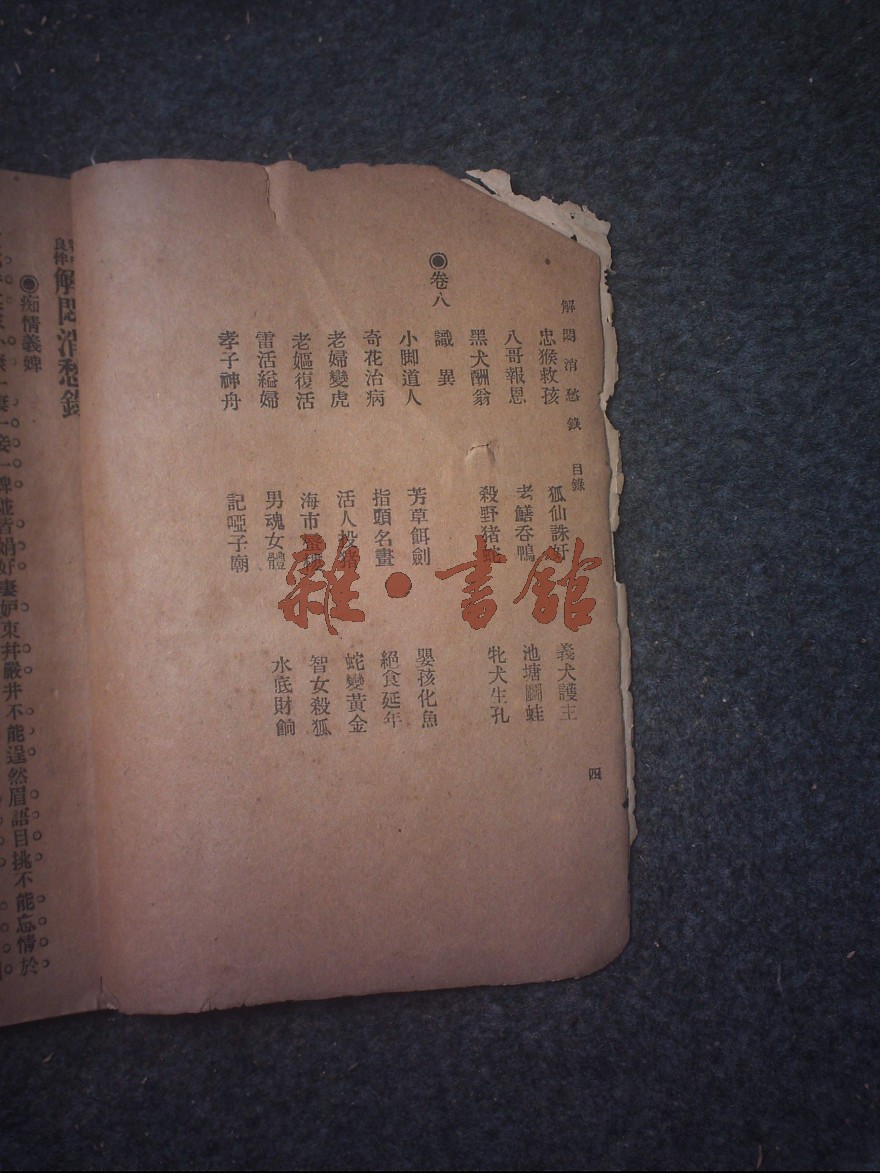 解悶消愁錄 目錄 四
忠猴救孩 狐仙誅奸 義犬護主
八哥報恩 老鱔吞鴨 池塘鬭蛙
黑犬酬翁 殺野猪 牝犬生孔
識異
◉卷八
小脚道人 芳草餌劍 嬰孩化魚
奇花治病 指頭名畫 絕食延年
老婦變虎 活人投 蛇變黃金
老嫗復活 海市 智女殺狐
雷活縊婦 男魂女體 水底財餉
孝子神舟 記啞子廟
解悶消愁錄
◉痴情義婢
不能逞然眉語目挑不能忘情於
雜·書館